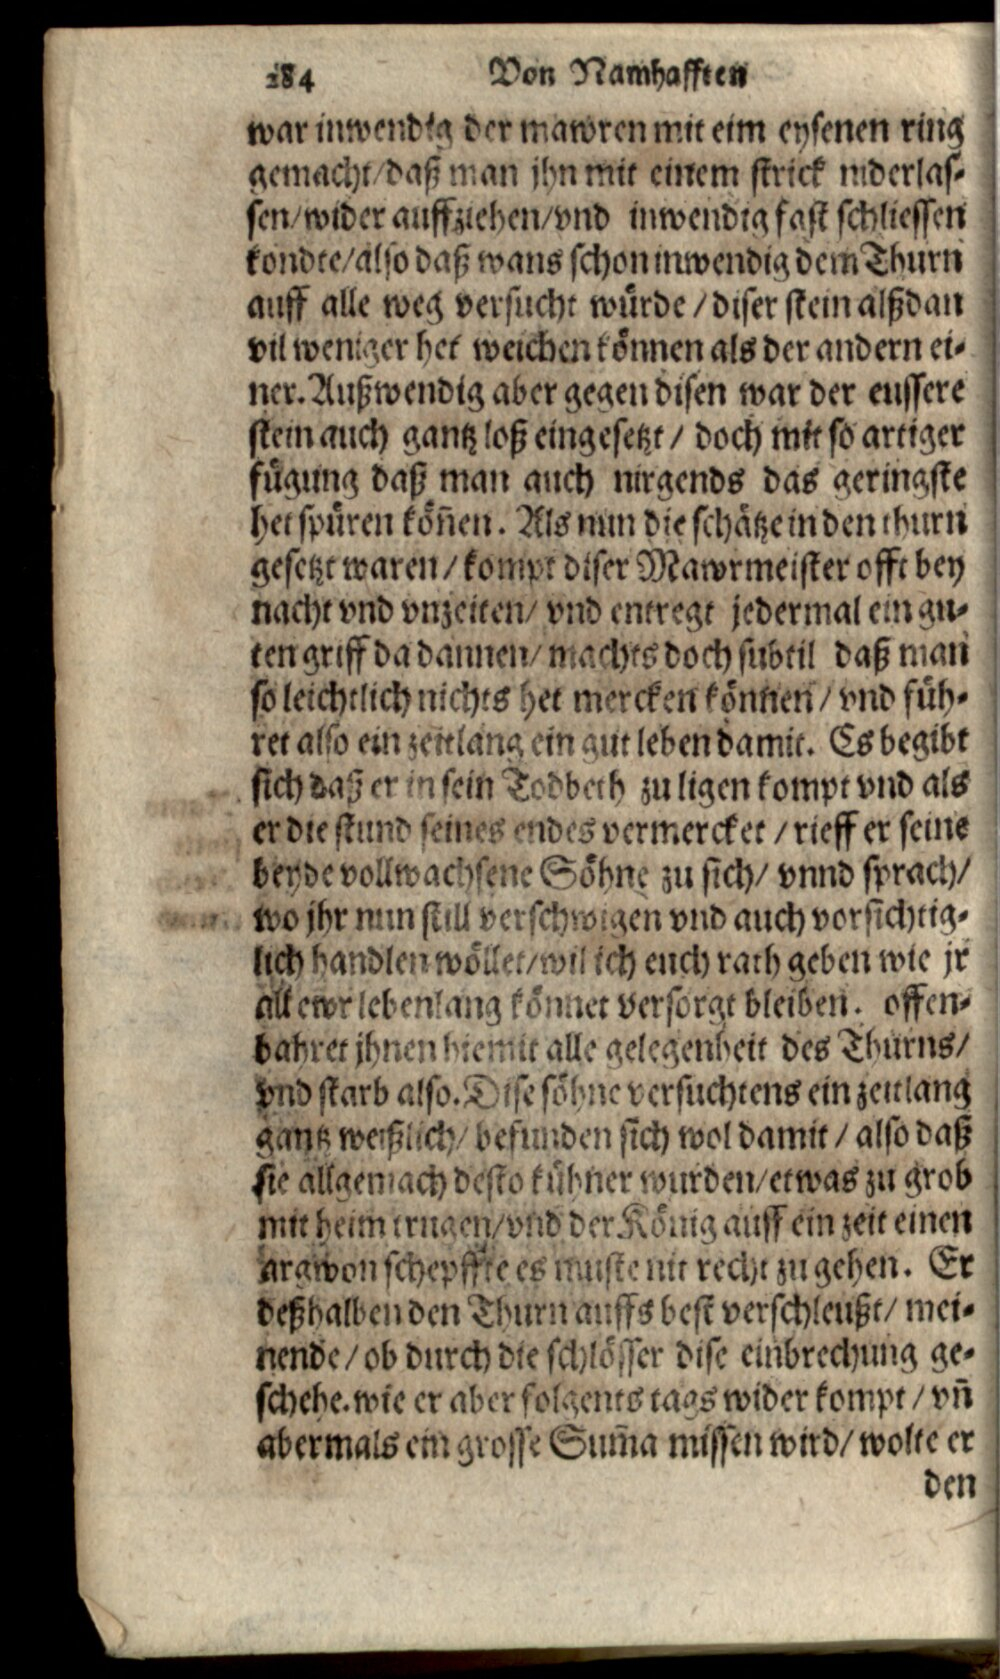 284 Von Namhafften
war inwendig der mawren mit eim eysenen ring
gemacht/daß man jhn mit einem strick niderlas-
sen/wider auffziehen/vnd inwendig fast schliessen
kondte/also daß wans schon inwendig dem Thurn
auff alle weg versucht würde/diser stein alßdan
vil weniger het weichen können als der andern ei-
ner. Außwendig aber gegen disen war der eussere
stein auch gantz loß eingesetzt/doch mit so artiger
fügung daß man auch nirgends das geringste
het spüren köñen. Als nun die schätze in den thurn
gesetzt waren/kompt diser Mawrmeister offt bey
nacht vnd vnzeiten/vnd entregt jedermal ein gu-
ten griff da dannen/machts doch subtil daß man
so leichtlich nichts het mercken können/vnd füh-
ret also ein zeitlang ein gut leben damit. Es begibt
sich daß er in sein Todbeth zu ligen kompt vnd als
er die stund seines endes vermercket/rieff er seine
beyde vollwachsene Söhne zu sich/vnnd sprach/
wo jhr nun still verschwigen vnd auch vorsichtig-
lich handlen wöllet/wil ich euch rath geben wie jr
all ewr lebenlang könnet versorgt bleiben. offen-
bahret jhnen hiemit alle gelegenheit des Thurns/
vnd starb also. Dise söhne versuchtens ein zeitlang
gantz weißlich/befunden sich wol damit/also daß
sie allgemach desto kühner wurden/etwas zu grob
mit heim trugen/vnd der König auff ein zeit einen
argwon schepffte es muste nit recht zu gehen. Er
deßhalben den Thurn auffs best verschleußt/mei-
nende/ob durch die schlösser dise einbrechung ge-
schehe. wie er aber folgents tags wider kompt/vñ
abermals ein grosse Sum̃a missen wird/wolte er
den